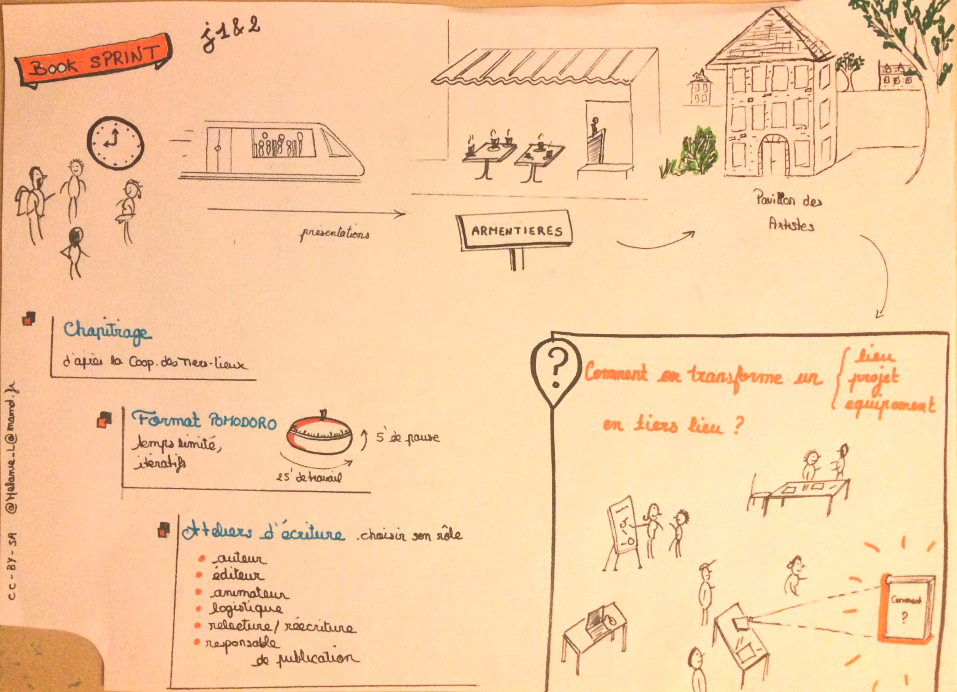 Book SPRINT
j 1 & 2
présentations
ARMENTIERES
Pavillon des
Artistes
Chapitrage
d'après la Coop. des Tiers-Lieux
Format POMODORO
temps limité,
itératifs
5' de pause
25' de travail
Ateliers d'écriture choisir son rôle
auteur
éditeur
animateur
logistique
relecture / réécriture
responsable
de publication
?
Comment on transforme un
lieu
projet
equipement
en tiers lieu ?
Comment
?
CC-BY-SA @Melanie-L@mamd.fr